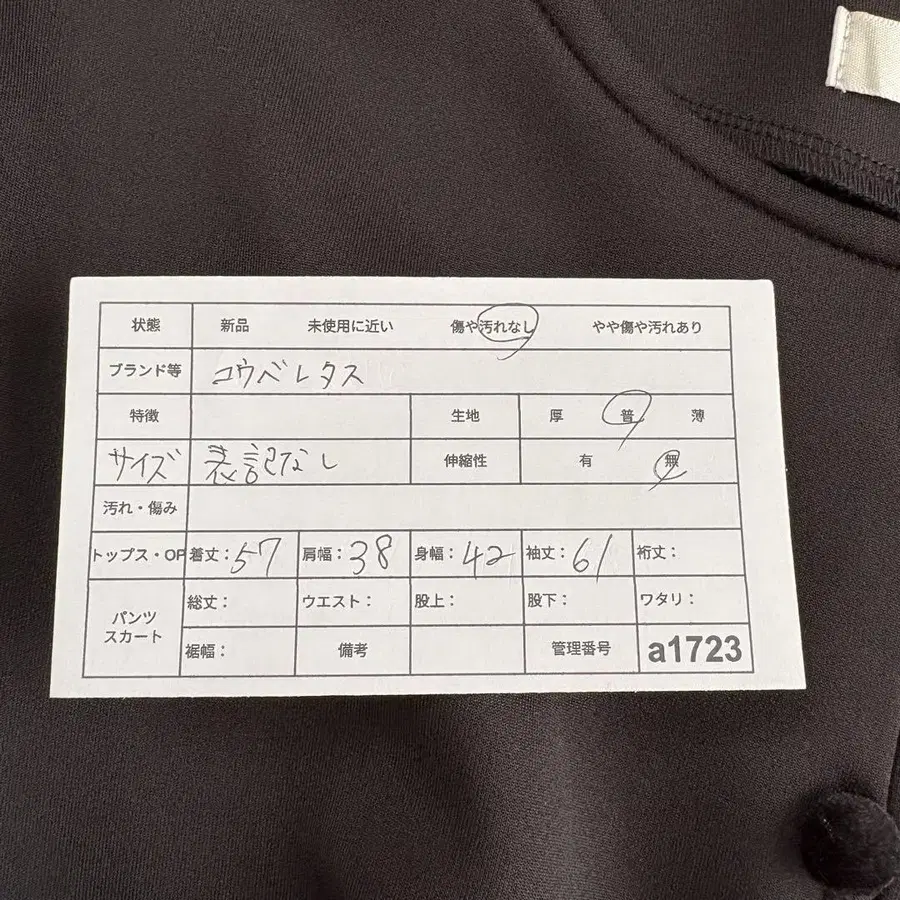 状態 新品 未使用に近い 傷や汚れなし やや傷や汚れあり
ブランド等 コウベレタス
特徴 生地 厚 普 薄
サイズ 表記なし 伸縮性 有 無
汚れ・傷み
トップス・OP 着丈：57 肩幅：38 身幅：42 袖丈：61 裄丈：
パンツ スカート 総丈： ウエスト： 股上： 股下： ワタリ：
裾幅： 備考 管理番号 a1723